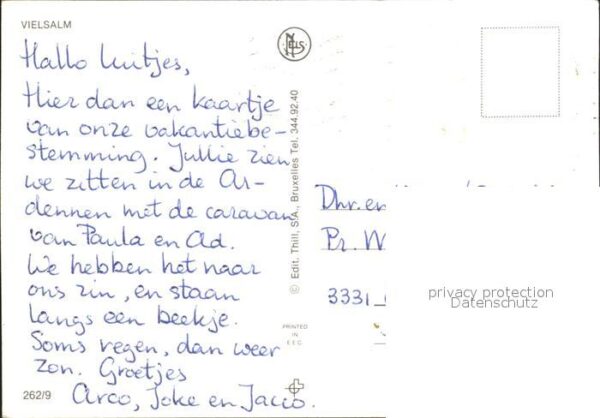 VIELSALM
Hallo luitjes,
Hier dan een kaartje
van onze vakantiebe-
stemming. Jullie zien
we zitten in de Ar-
dennen met de caravan
van Paula en Ad.
We hebben het naar
ons zin, en staan
langs een beekje.
Soms regen, dan weer
zon. Groetjes
Arco, Joke en Jacco.
262/9
NELS
© Edit. Thill, S.A., Bruxelles Tel. 344.92.40
PRINTED
IN
EEC
Dhr. en
Pr. W
3331
privacy protection
Datenschutz